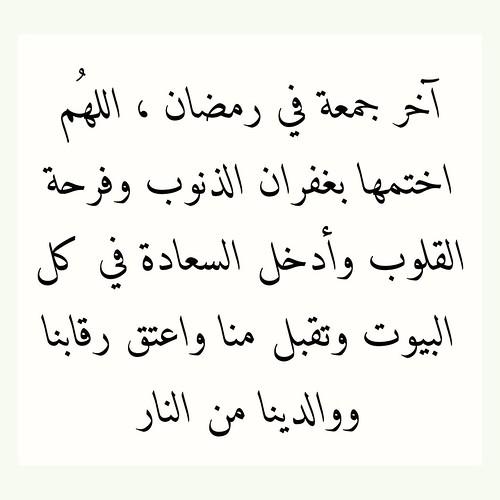 آخر جمعة في رمضان ، اللهُم
اختمها بغفران الذنوب وفرحة
القلوب وأدخل السعادة في كل
البيوت وتقبل منا واعتق رقابنا
ووالدينا من النار